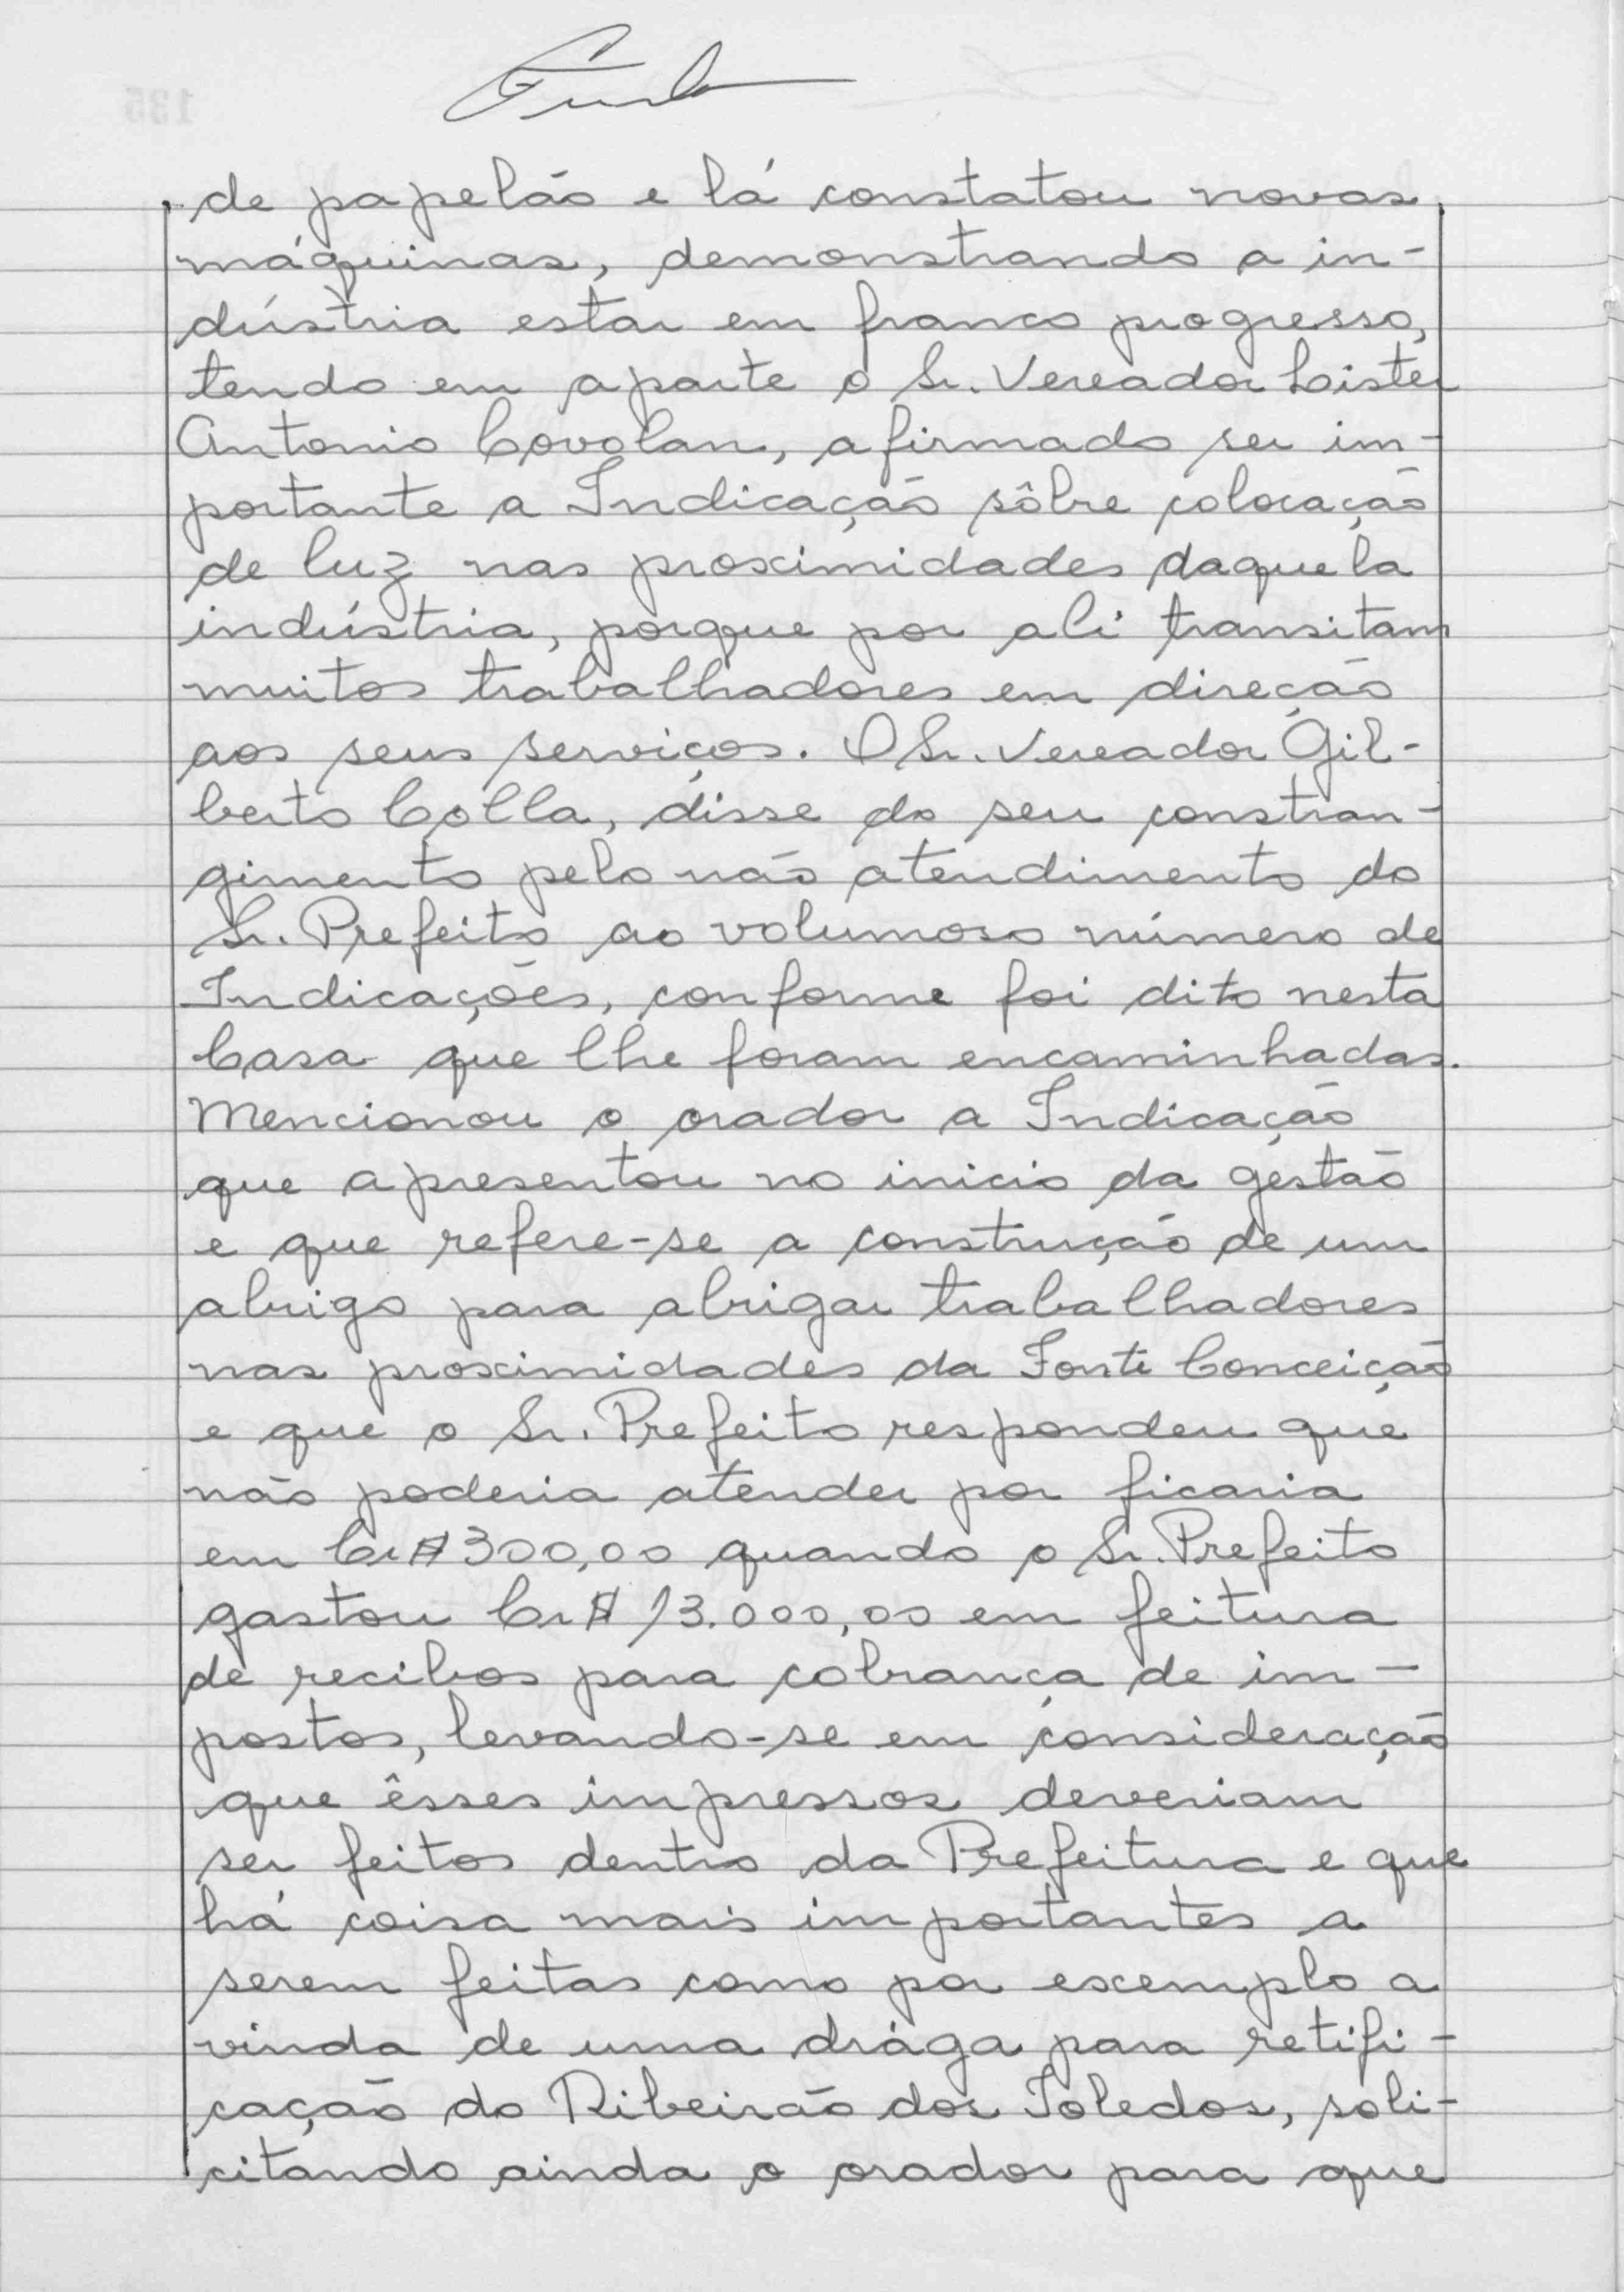 de papelão e lá constatou novas
máquinas, demonstrando a in-
dústria estar em franco progresso,
tendo em aparte o Sr. Vereador Lister
Antonio Covolan, afirmado ser im-
portante a Indicação sôbre colocação
de luz nas proximidades daquela
indústria, porque por ali transitam
muitos trabalhadores em direção
aos seus serviços. O Sr. Vereador Gil-
berto Colla, disse do seu constran-
gimento pelo não atendimento do
Sr. Prefeito ao volumoso número de
Indicações, conforme foi dito nesta
Casa que lhe foram encaminhadas.
Mencionou o orador a Indicação
que apresentou no inicio da gestão
e que refere-se a construção de um
abrigo para abrigar trabalhadores
nas proximidades da Fonte Conceição
e que o Sr. Prefeito respondeu que
não poderia atender por ficaria
em Cr$ 300,00 quando o Sr. Prefeito
gastou Cr$ 13.000,00 em feitura
de recibos para cobrança de im-
postos, levando-se em consideração
que êsses impressos deveriam
ser feitos dentro da Prefeitura e que
há coisa mais importantes a
serem feitas como por exemplo a
vinda de uma dràga para retifi-
cação do Ribeirão dos Toledos, soli-
citando ainda o orador para que